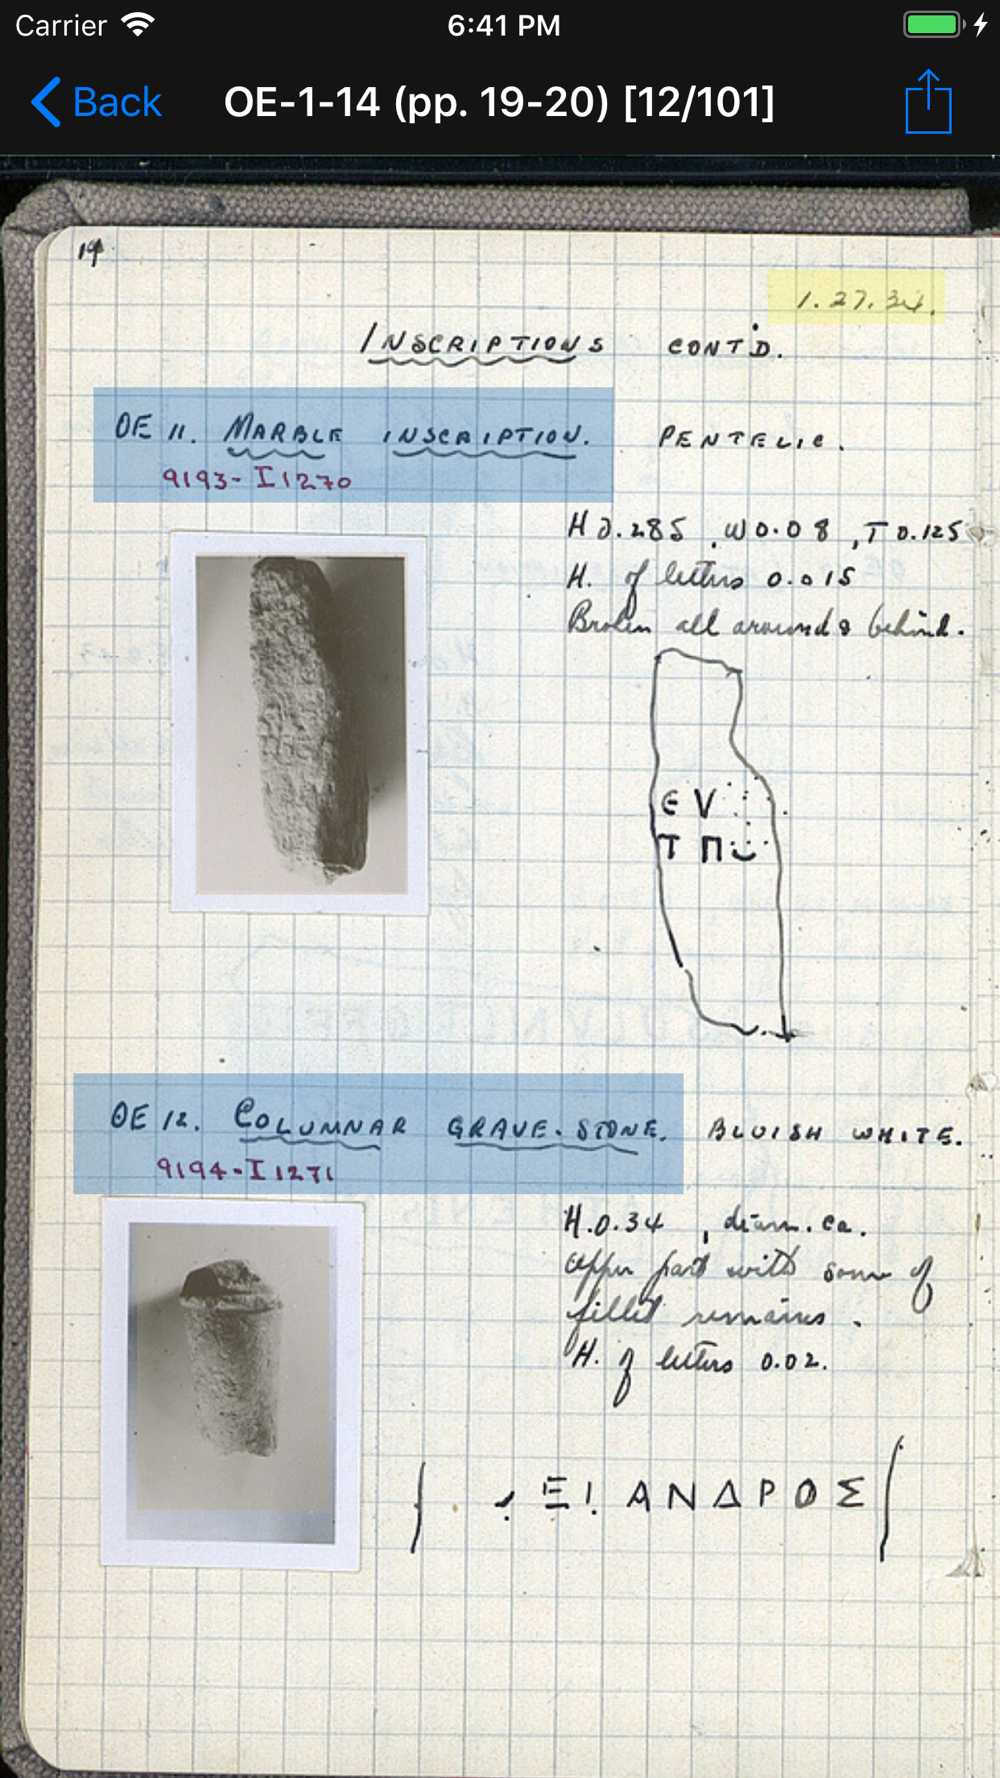 Carrier
6:41 PM
Back
OE-1-14 (pp. 19-20) [12/101]
19
1.27.34.
INSCRIPTIONS CONT'D.
OE 11. MARBLE INSCRIPTION. PENTELIC.
9193-I 1270
H 0.285, W 0.08, T 0.125
H. of letters 0.015
Broken all around & behind.
Є V
T Π
OE 12. COLUMNAR GRAVE-STONE. BLUISH WHITE.
9194-I 1271
H. 0.34, diam. ca.
Upper part with some of
fillet remains.
H. of letters 0.02.
ΞΙ ΑΝΔΡΟΣ